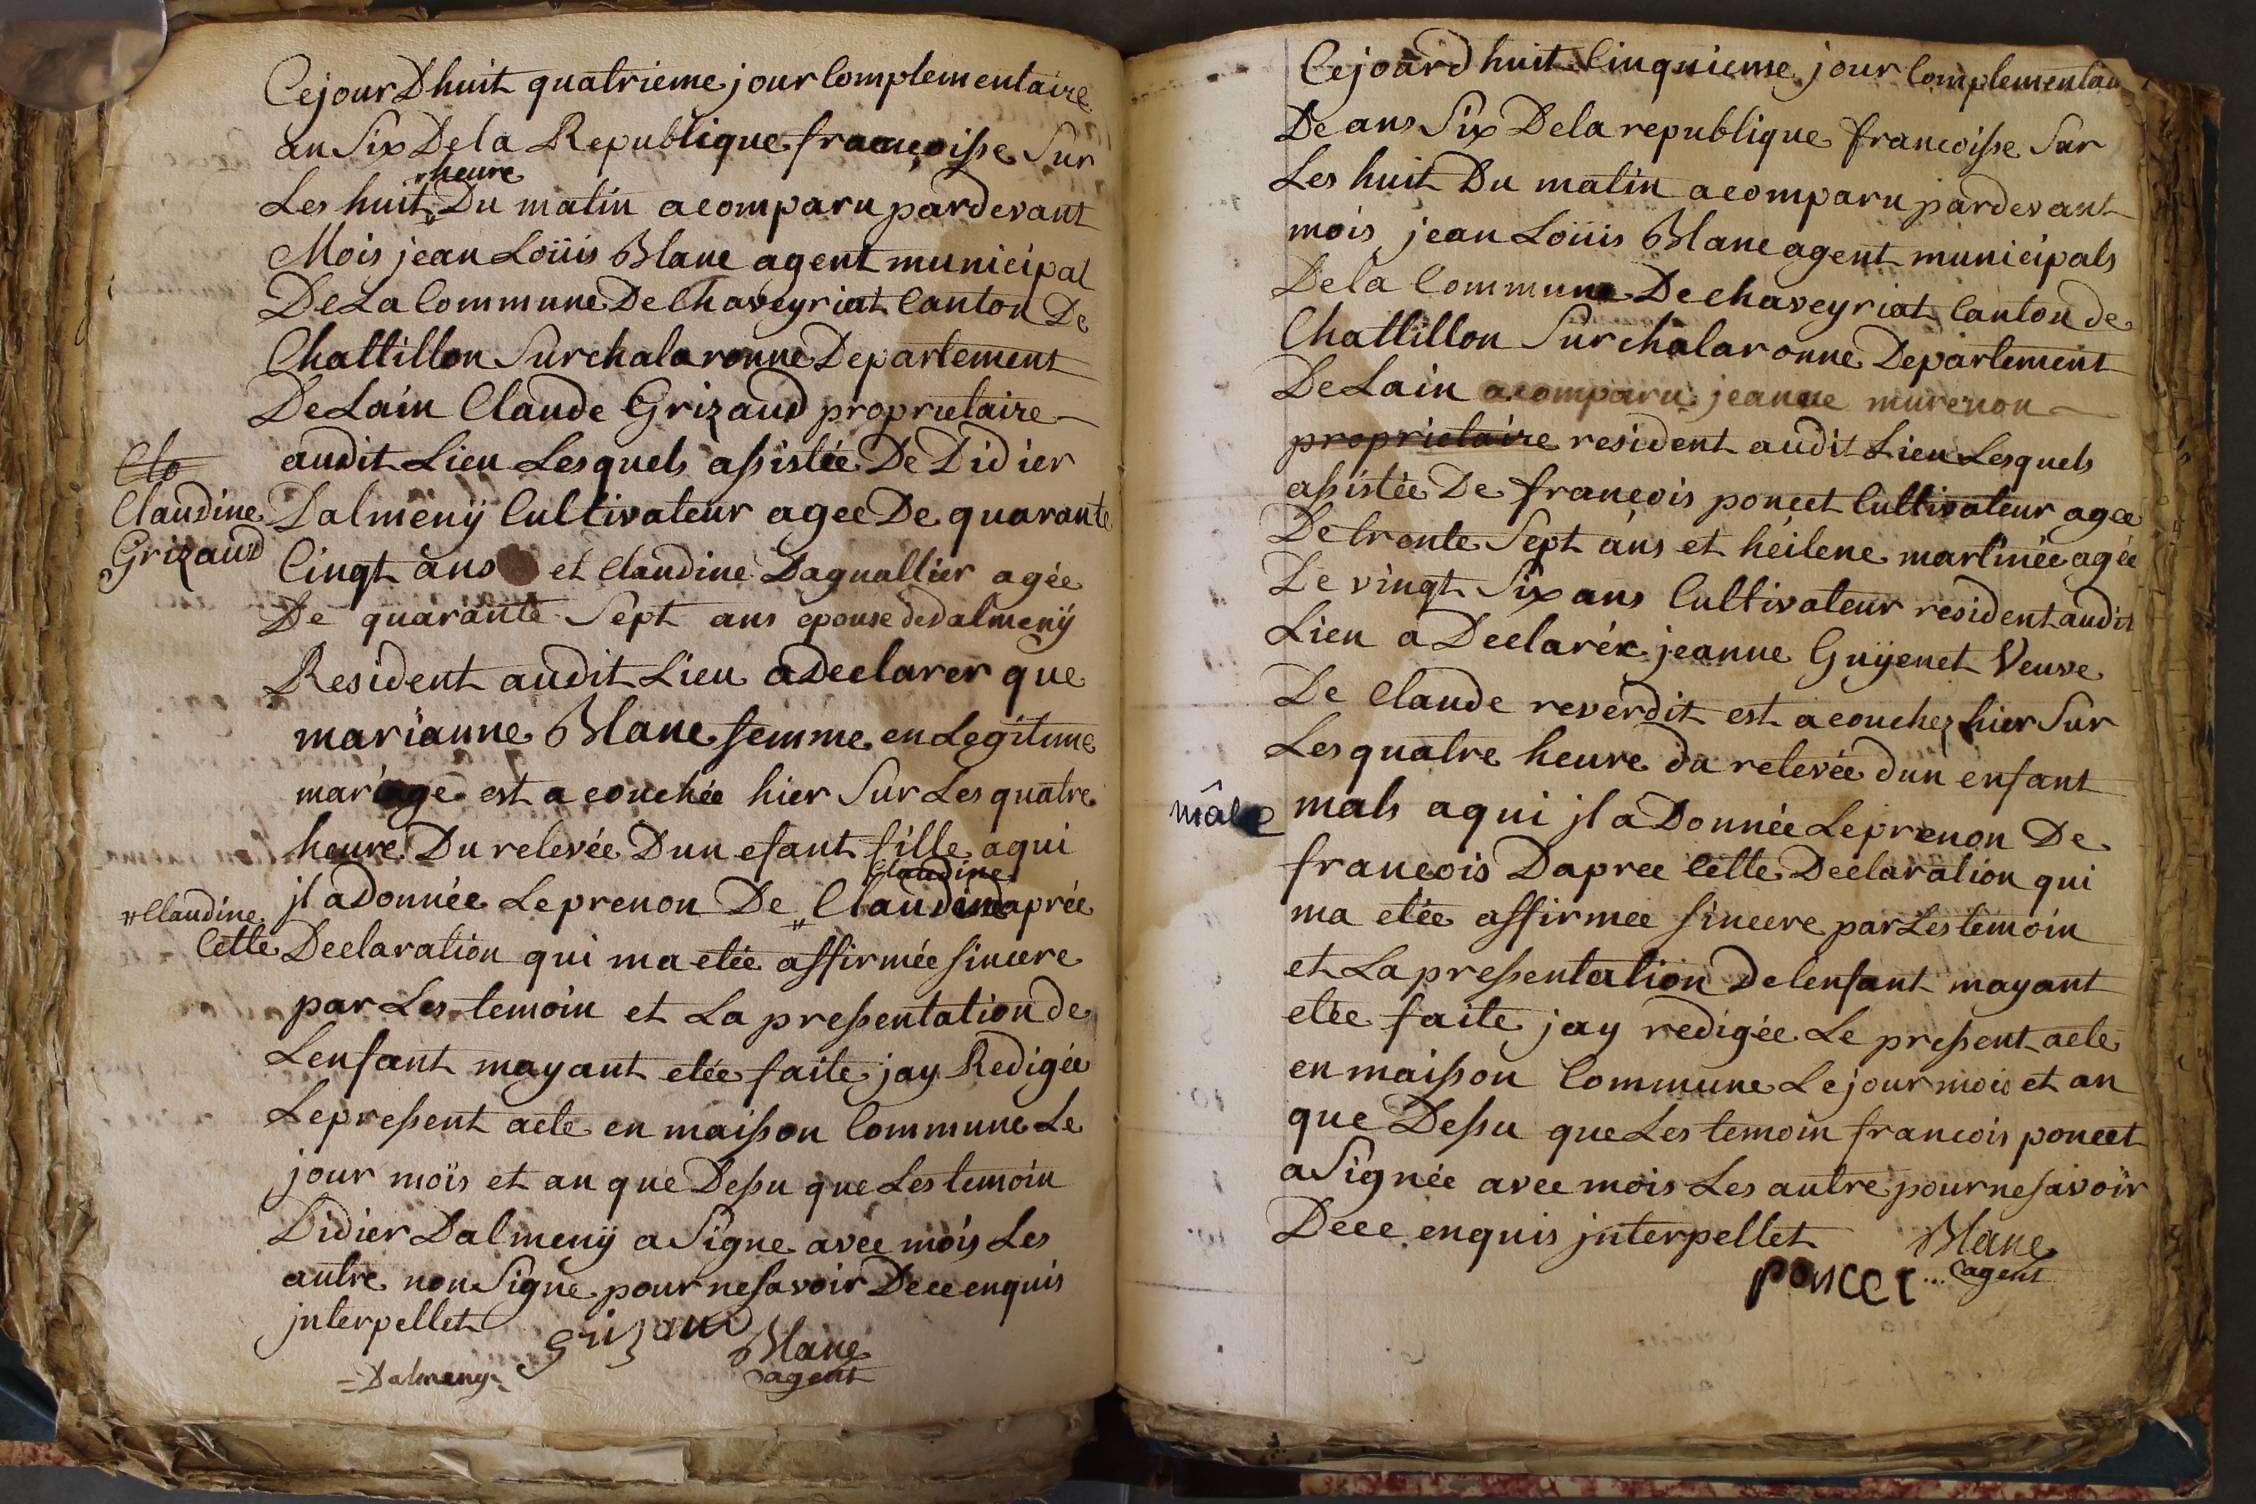 Cejour Dhuit quatrieme jour Complementaire
an Six De la Republique françoisse Sur
heure
Les huit Du matin acomparu pardevant
Mois jean Loüis Blanc agent municipal
De La Commune De Chaveyriat Canton De
Chattillon Surchalaronne Departement
De Lain Claude Grizaud proprietaire
audit Lieu Lesquels assistée De Didier
Clo
Claudine
Grizaud
Dalmenÿ Cultivateur agee De quarante
Cingt ans et Claudine Dagnallier agée
De quarante Sept ans epouse de dalmenÿ
Resident audit Lieu a Declarer que
marianne Blanc femme en Legitime
mariage est a couchée hier Sur Les quatre
heure Du relevée Dun efant fille aqui
Claudine
jl a Donnée Le prenon De Claudine daprée
"Claudine
Cette Declaration qui ma etée affirmée sincere
par Les temoin et La pressentation de
Lenfant mayant etée faite jay Redigée
Le pressent acte en maisson Commune Le
jour moïs et an que Dessu que Les temoin
Didier Dalmenÿ a Signe avec moïs Les
autre non Signe pour ne savoir De ce enquis
jnterpellet
grizaud
Blanc
agent
Dalmeny
Cejourd huit Cinquieme jour Complementai
De ans Six De la republique francoisse Sur
Les huit Du matin acomparu pardevant
moïs jean Loüis Blanc agent municipals
De la Commune De chaveyriat Canton de
Chattillon Surchalaronne Departement
De Lain acomparu jeanne murenon
proprietaire resident audit Lieu Lesquels
assistée De françois poncet Cultivateur agee
De trente Sept ans et héilene martinée agée
De vingt Six ans Cultivateur resident audit
Lien a Declarér jeanne Guÿenet Veuve
De Claude reverdit est a couchez hier Sur
Les quatre heure du relevée dun enfant
mâle
mals aqui jl a Donnée Le prenon De
francois Dapree Cette Declaration qui
ma etée affirmee sincere par Les temoin
et La pressentation De lenfant mayant
etée faite jay redigée Le pressent acte
en maisson Commune Le jour mois et an
que Dessu que Les temoin francois poncet
a Signée avec mois Les autre pour ne savoir
De ce enquis jnterpellet
Blanc
agent
poncet